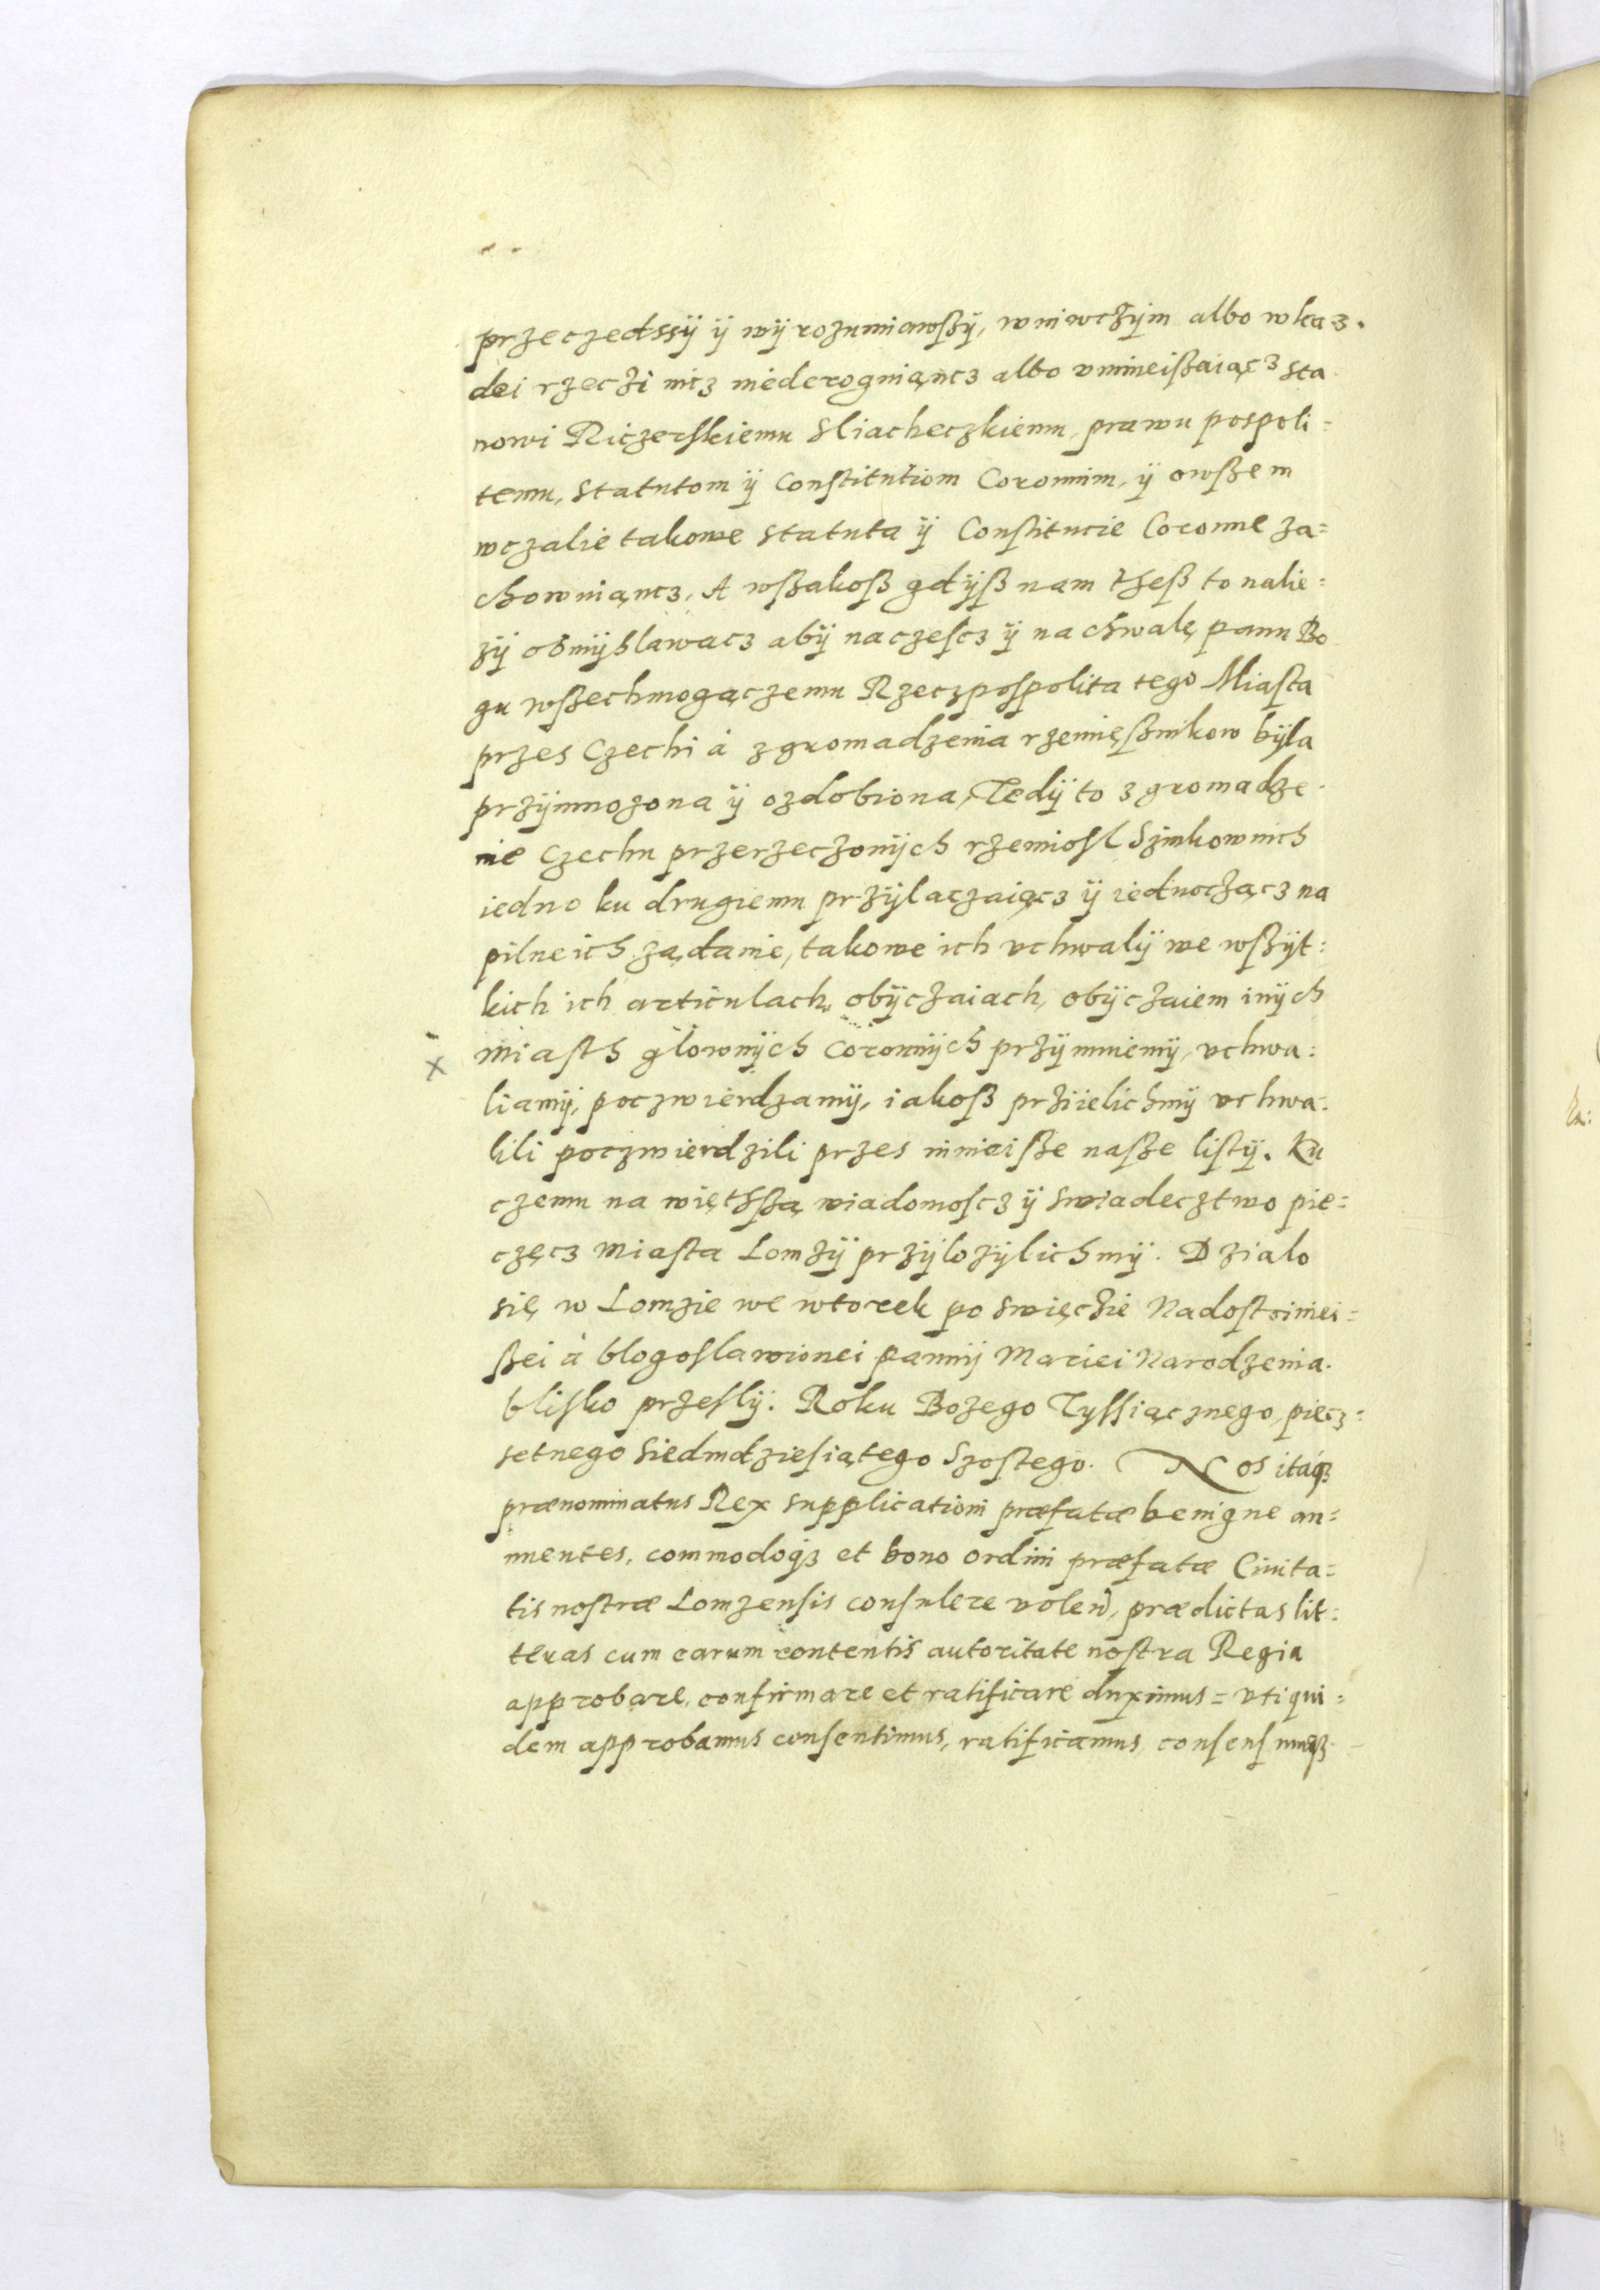 przeczedssÿ ÿ wÿrozumiawßÿ, wniwczÿm albo wkaz.
dei rzeczi nicz niederoguiąncz albo vmnieißaiącz sta
nowi Riczerskiemu Sliacheczkiemu, prawu pospoli=
temu, Statutom ÿ Constitutiom Coronnim, ÿ owßem
wczalie takowe Statuta ÿ Constitucie Coronne za=
chowuiąncz. A wßakoß gdÿß nam theß to nalie=
zÿ obmÿslawacz abÿ na czescz ÿ na chwalę panu Bo
gu wßechmogączemu Rzeczpospolita tego Miasta
przes Czechi à zgromadzenia rzemięßnikow bÿla
przÿmnozona ÿ ozdobiona, Tedÿ to zgromadze
nie Czechu przerzeczonÿch rzemiosl Szinkownich
iedno ku drugiemu przÿlączaiącz ÿ iednocząncz na
pilne ich ządanie, takowe ich vchwalÿ we wßÿt=
kich ich articulach, obÿczaiach, obÿczaiem inÿch
x miasth glownÿch Coronnÿch przÿmuiemÿ, vchwa=
liamÿ, poczwierdzamÿ, iakoß prziielichmÿ vchwa.
lili poczwierdzili przes innieiße naße listÿ. Ku
czemu na więthßą wiadomoscz ÿ Swiadecztwo pie=
częcz Miasta Lomzÿ przÿlozÿlichmÿ. Dzialo
się w Lomzie we wtorek po Swięczie Nadostoiniei=
ßei à blogoslawionei pannÿ Mariei Narodzenia.
blisko przeslÿ. Roku Bozego Tyssiącznego, piecz=
setnego Siedmdziesiątego Szostego. Nos itaqȝ
prænominatus Rex supplicationi præfatæ benigne an=
nuentes, commodoqȝ et bono ordini præfatæ Ciuita=
tis nostræ Lomzensis consulere volen, prædictas lit=
teras cum earum contentis autoritate nostra Regia
approbare, confirmare et ratificare duximus = vti qui=
dem approbamus consentimus, ratificamus,